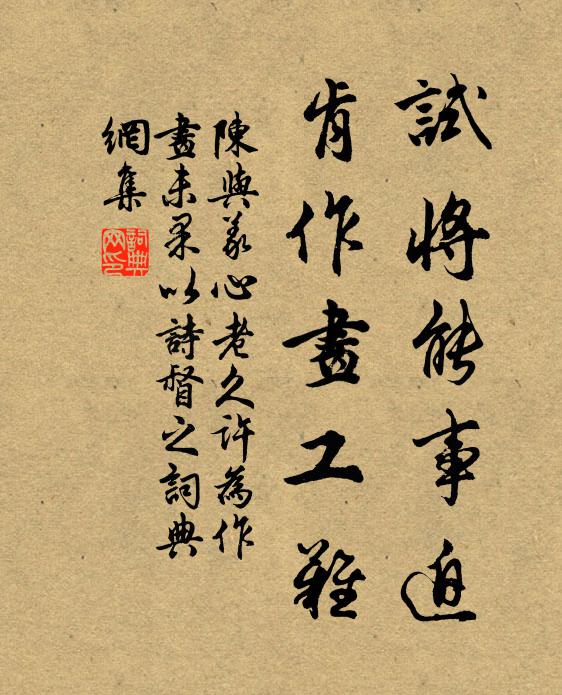 試將能事迫
肯作畫工難
陳與義心老久許為作
畫未果以詩督之詞典
網集
詞典
网印